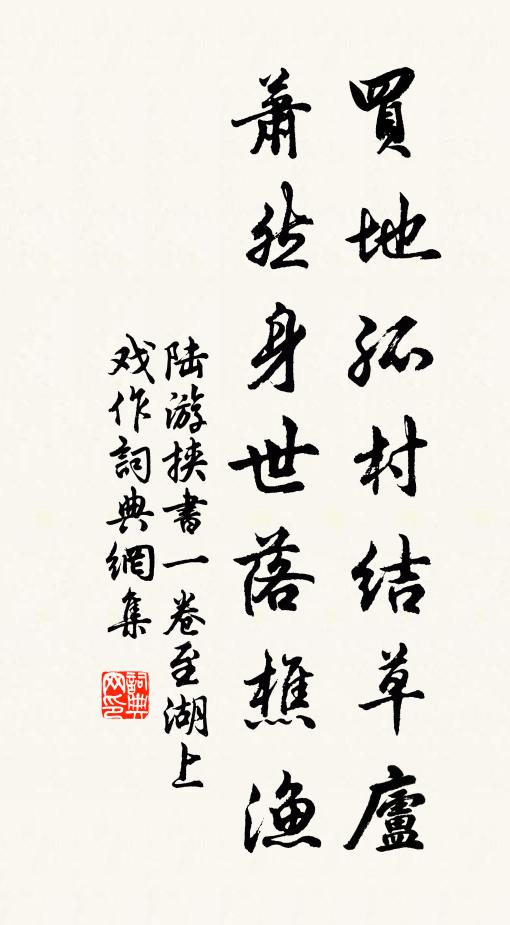 買地孤村結草廬
蕭然身世落樵漁
陆游挾書一卷至湖上
戏作詞典網集
詞典网印